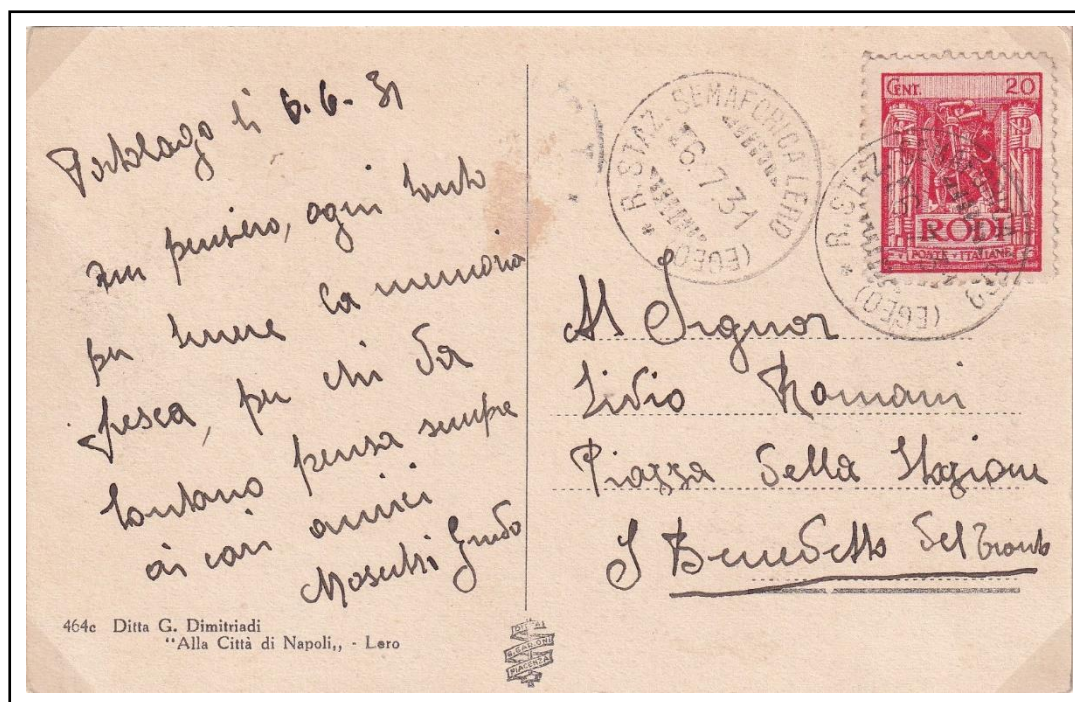 Portolago li 6-6-31
un pensiero, ogni tanto
per tenere la memoria
fresca, per chi da
lontano pensa sempre
ai cari amici
Guido
464c Ditta G. Dimitriadi
"Alla Città di Napoli,, - Lero
R. STAZ. SEMAFORICA LERO
6.7.31
(EGEO)
CENT. 20
RODI
POSTE ITALIANE
R. STAZ.
(EGEO)
Al Signor
Livio Romani
Piazza della Stazione
S Benedetto del Tronto
DITTA
PIACENZA